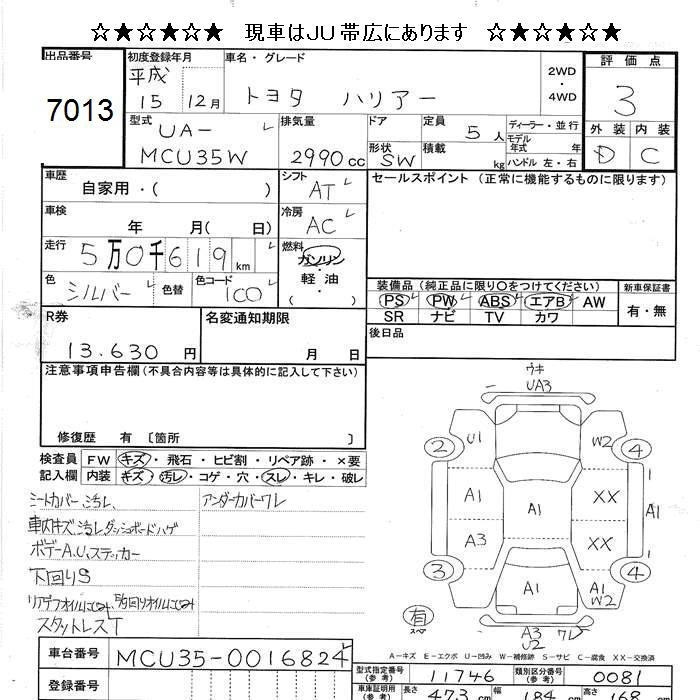 ☆★☆★☆★ 現車はJU帯広にあります ☆★☆★☆★
出品番号 初度登録年月 車名・グレード 評価点
7013 平成 15 12月 トヨタ ハリアー 2WD・4WD 3
型式 排気量 ドア 定員 5人 ディーラー・並行 外装 内装
UA- MCU35W 2990cc 形状 SW 積載 kg モデル年式 年 ハンドル 左・右 D C
車歴 自家用・( ) シフト AT セールスポイント (正常に機能するものに限ります)
車検 年 月( 日) 冷房 AC
走行 5万0千619km 燃料 ガソリン・軽油 ( )
色 シルバー 色替 色コード 1C0
装備品 (純正品に限り○をつけてください) 新車保証書
PS PW ABS エアB AW 有・無
SR ナビ TV カワ
R券 13.630円 名変通知期限 月 日 後日品
注意事項申告欄(不具合内容等は具体的に記入して下さい)
修復歴 有 〔箇所 〕
検査員 FW キズ・飛石・ヒビ割・リペア跡・×要
記入欄 内装 キズ・汚レ・コゲ・穴・スレ・キレ・破レ
シートカバー汚レ、 アンダーカバーワレ
車内キズ汚レダッシュボードハゲ
ボデーA.U.ステッカー
下回りS
リアデフオイルにじみ、
スタットレスT
ウキ
UA3
U1 W2
2 4
A1 A1 XX A1
A3 XX
3 4
A1 A1
W2
有
スペア
A3 ワレ
U2
A−キズ E−エクボ U−凹み W−補修跡 S−サビ C−腐食 XX−交換済
車台番号 MCU35-0016824
型式指定番号(参考) 11746 類別区分番号(参考) 0081
登録番号 車車証明用(参考) 長さ 473cm 幅 184cm 高さ 168cm